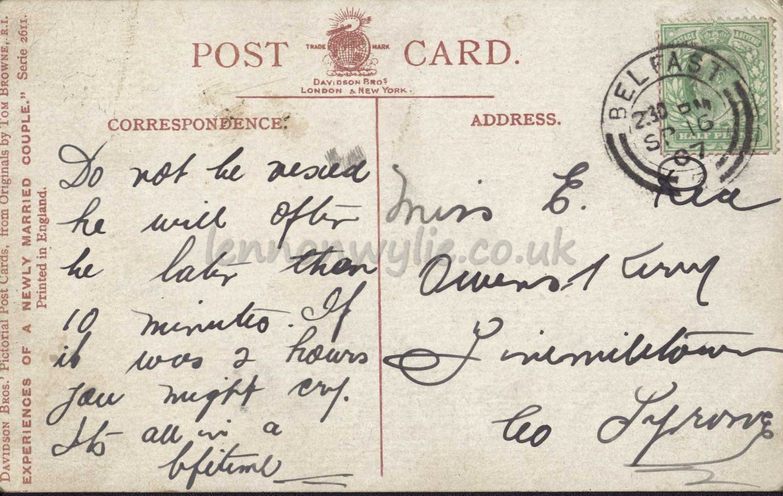 POST CARD.
TRADE MARK
DAVIDSON BROS
LONDON & NEW YORK.
CORRESPONDENCE.
ADDRESS.
BELFAST
2.30 PM
SP 16
07
HALF PENNY
DAVIDSON BROS.' Pictorial Post Cards, from Originals by TOM BROWNE, R.I.
EXPERIENCES OF A NEWLY MARRIED COUPLE." Serie 2611.
Printed in England.
Do not be vexed
he will often
be later than
10 minutes. If
it was 2 hours
you might cry.
Its all in a
lifetime
Miss E. Rea
Fivemiletown
Co Tyrone
lennonwylie.co.uk